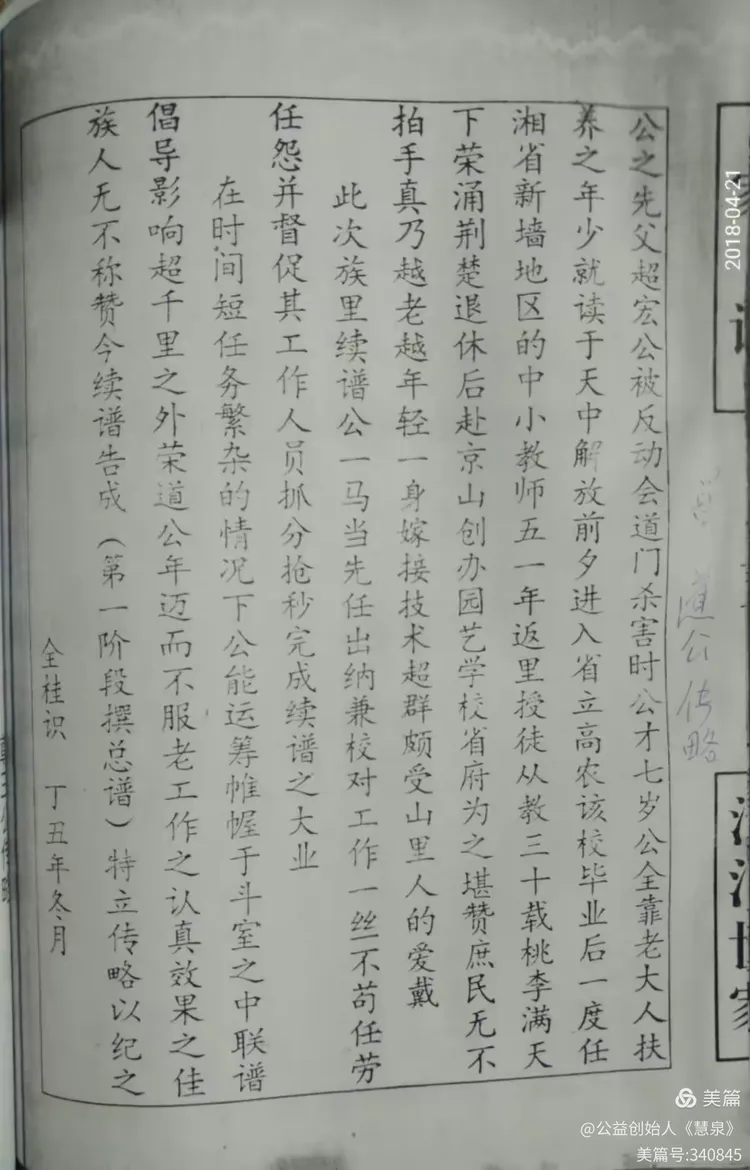 公之先父超宏公被反动会道门杀害时公才七岁公全靠老大人扶
养之年少就读于天中解放前夕进入省立高农该校毕业后一度任
湘省新墙地区的中小教师五一年返里授徒从教三十载桃李满天
下荣涌荆楚退休后赴京山创办园艺学校省府为之堪赞庶民无不
拍手真乃越老越年轻一身嫁接技术超群颇受山里人的爱戴
此次族里续谱公一马当先任出纳兼校对工作一丝不苟任劳
任怨并督促其工作人员抓分抢秒完成续谱之大业
在时间短任务繁杂的情况下公能运筹帷幄于斗室之中联谱
倡导影响超千里之外荣道公年迈而不服老工作之认真效果之佳
族人无不称赞今续谱告成（第一阶段撰总谱）特立传略以纪之
全桂识 丁丑年冬月
公传略
世家
2018-04-21
美篇
@公益创始人《慧泉》
美篇号:340845